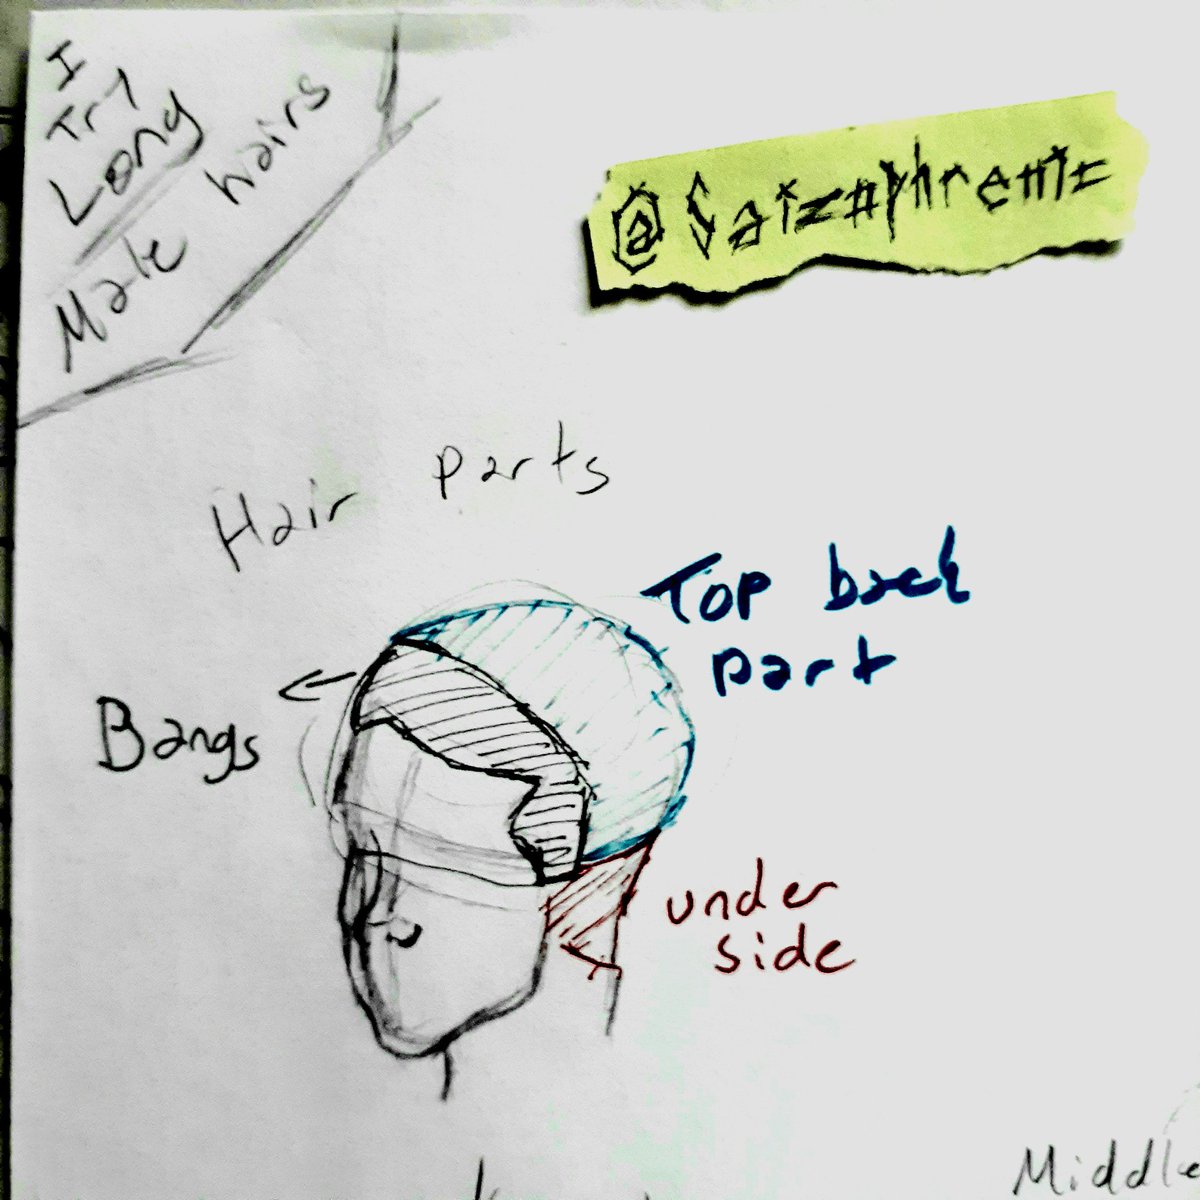 I
Try
Long
Male hairs
@Saizophrenic
Hair parts
Top back
part
Bangs
under
side
Middle